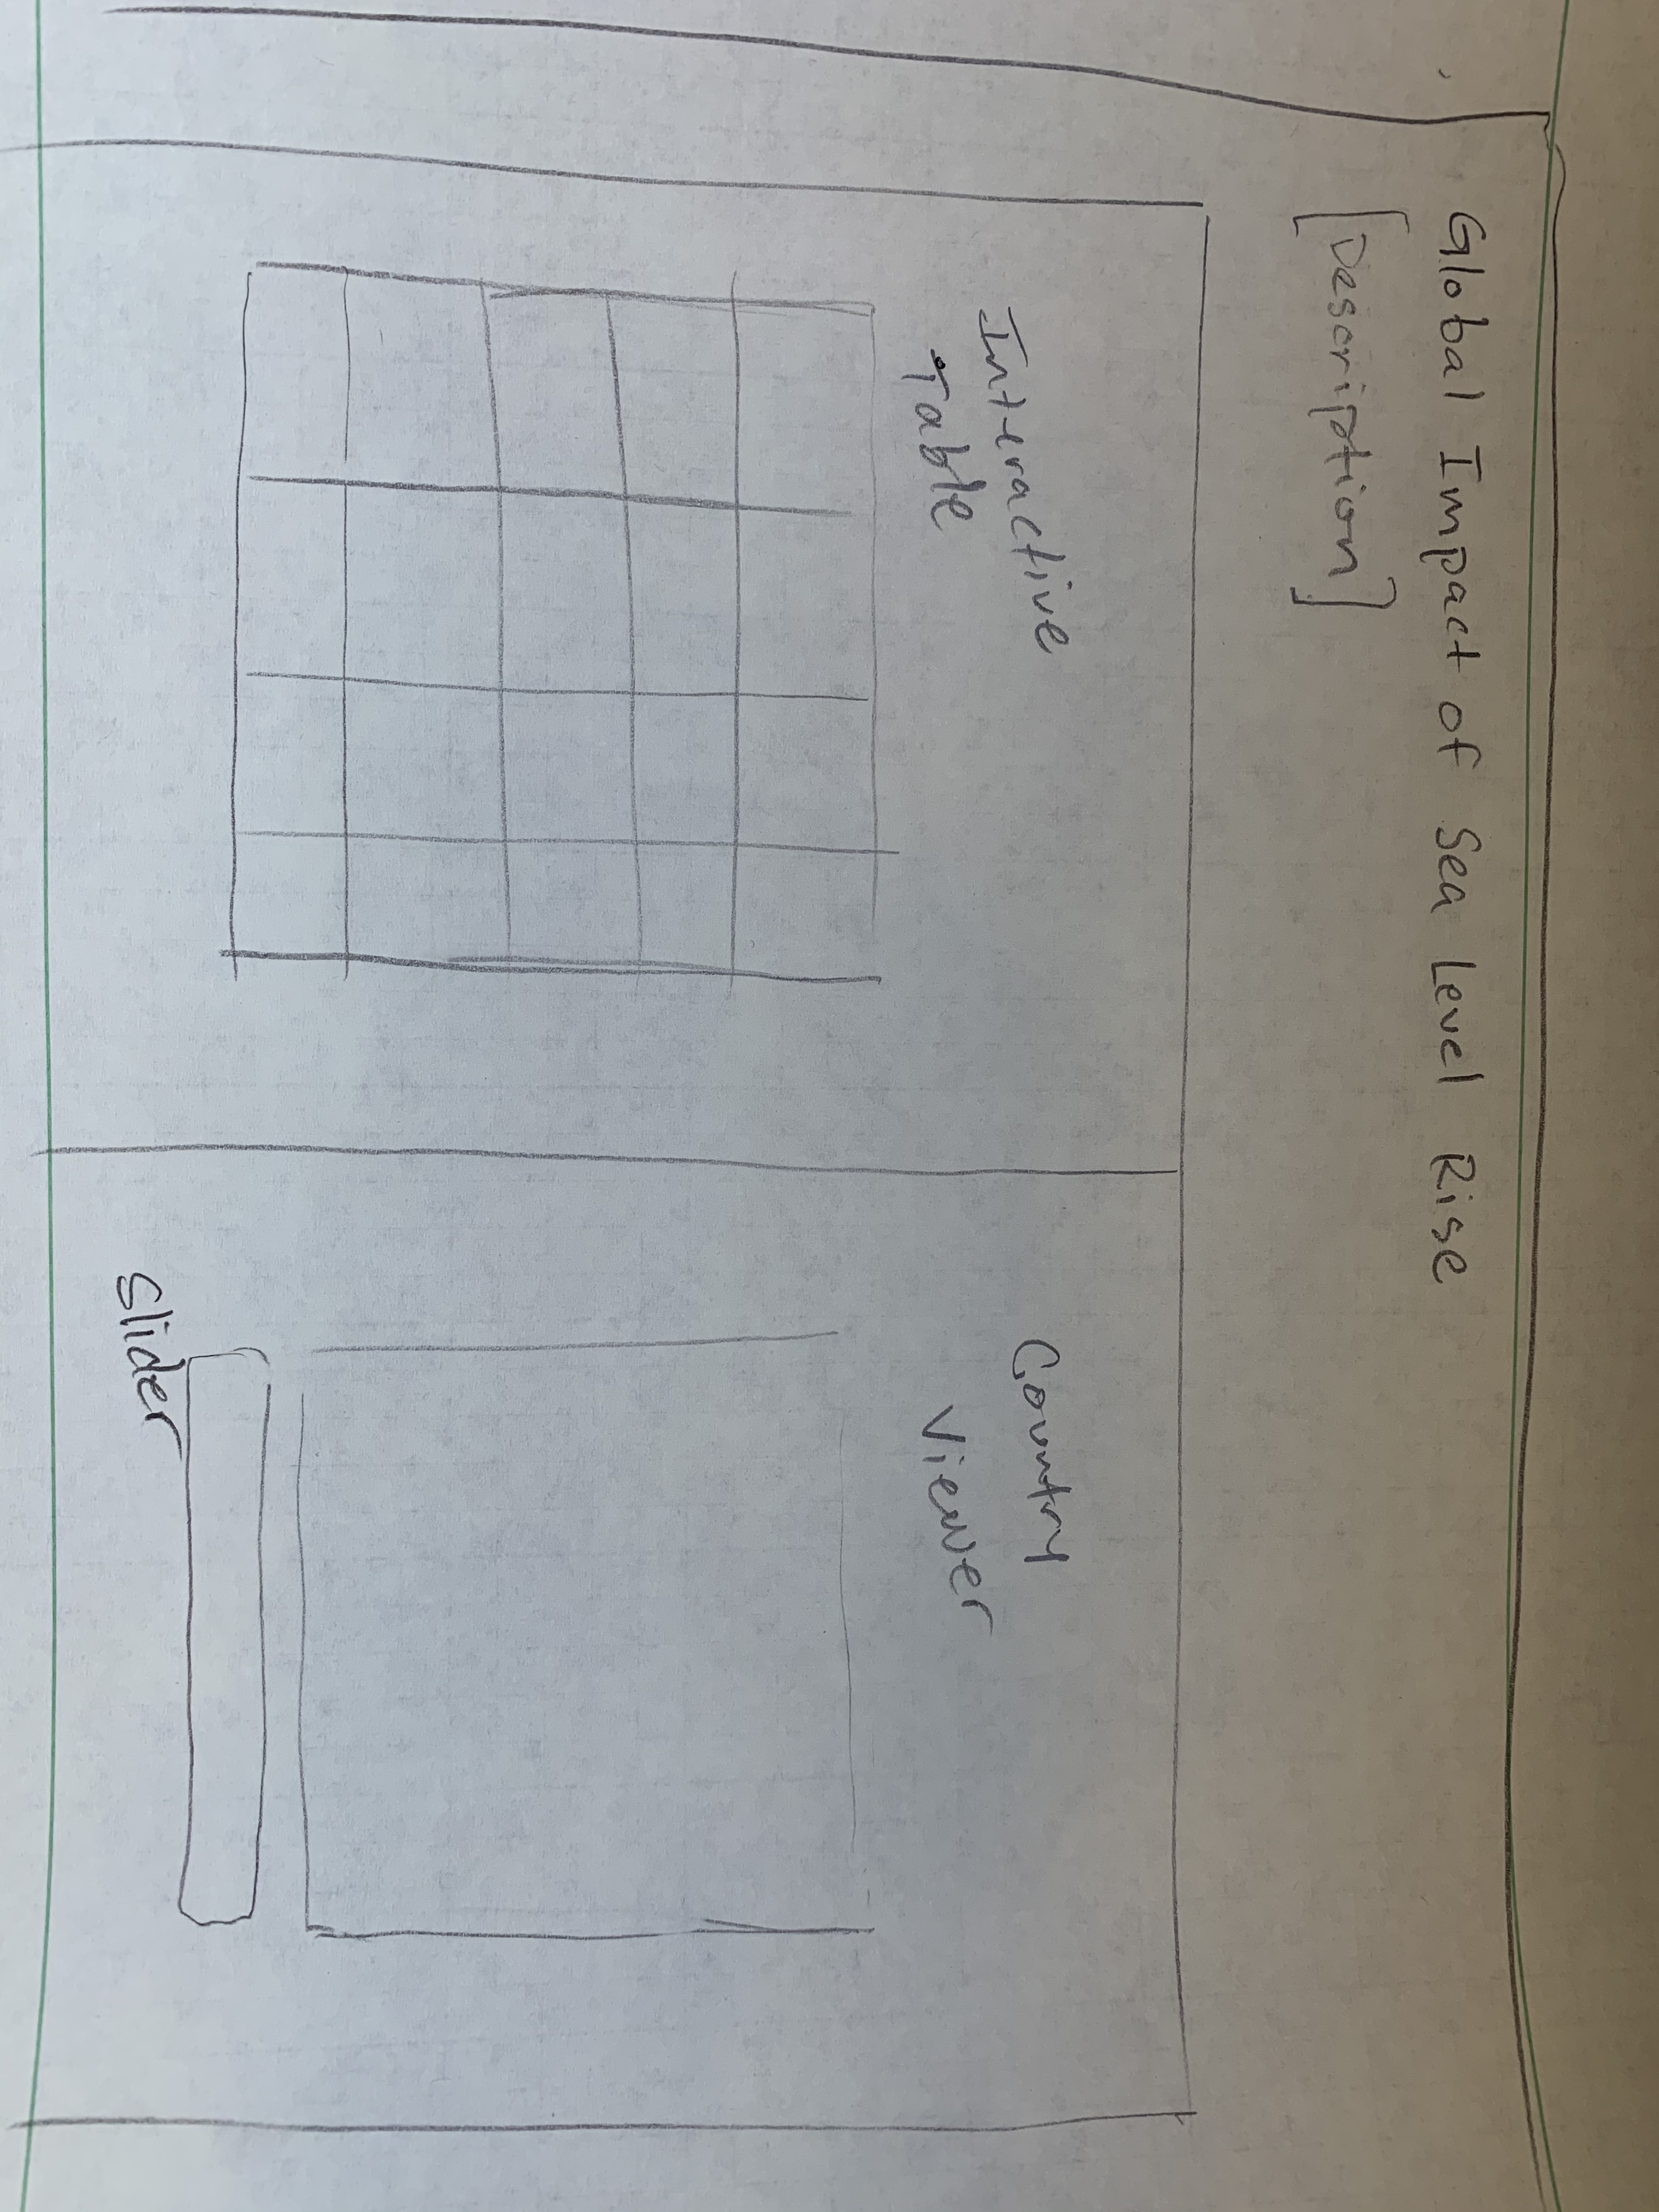 Global Impact of Sea Level Rise
[Description]
Interactive
Table
Country
Viewer
Slider